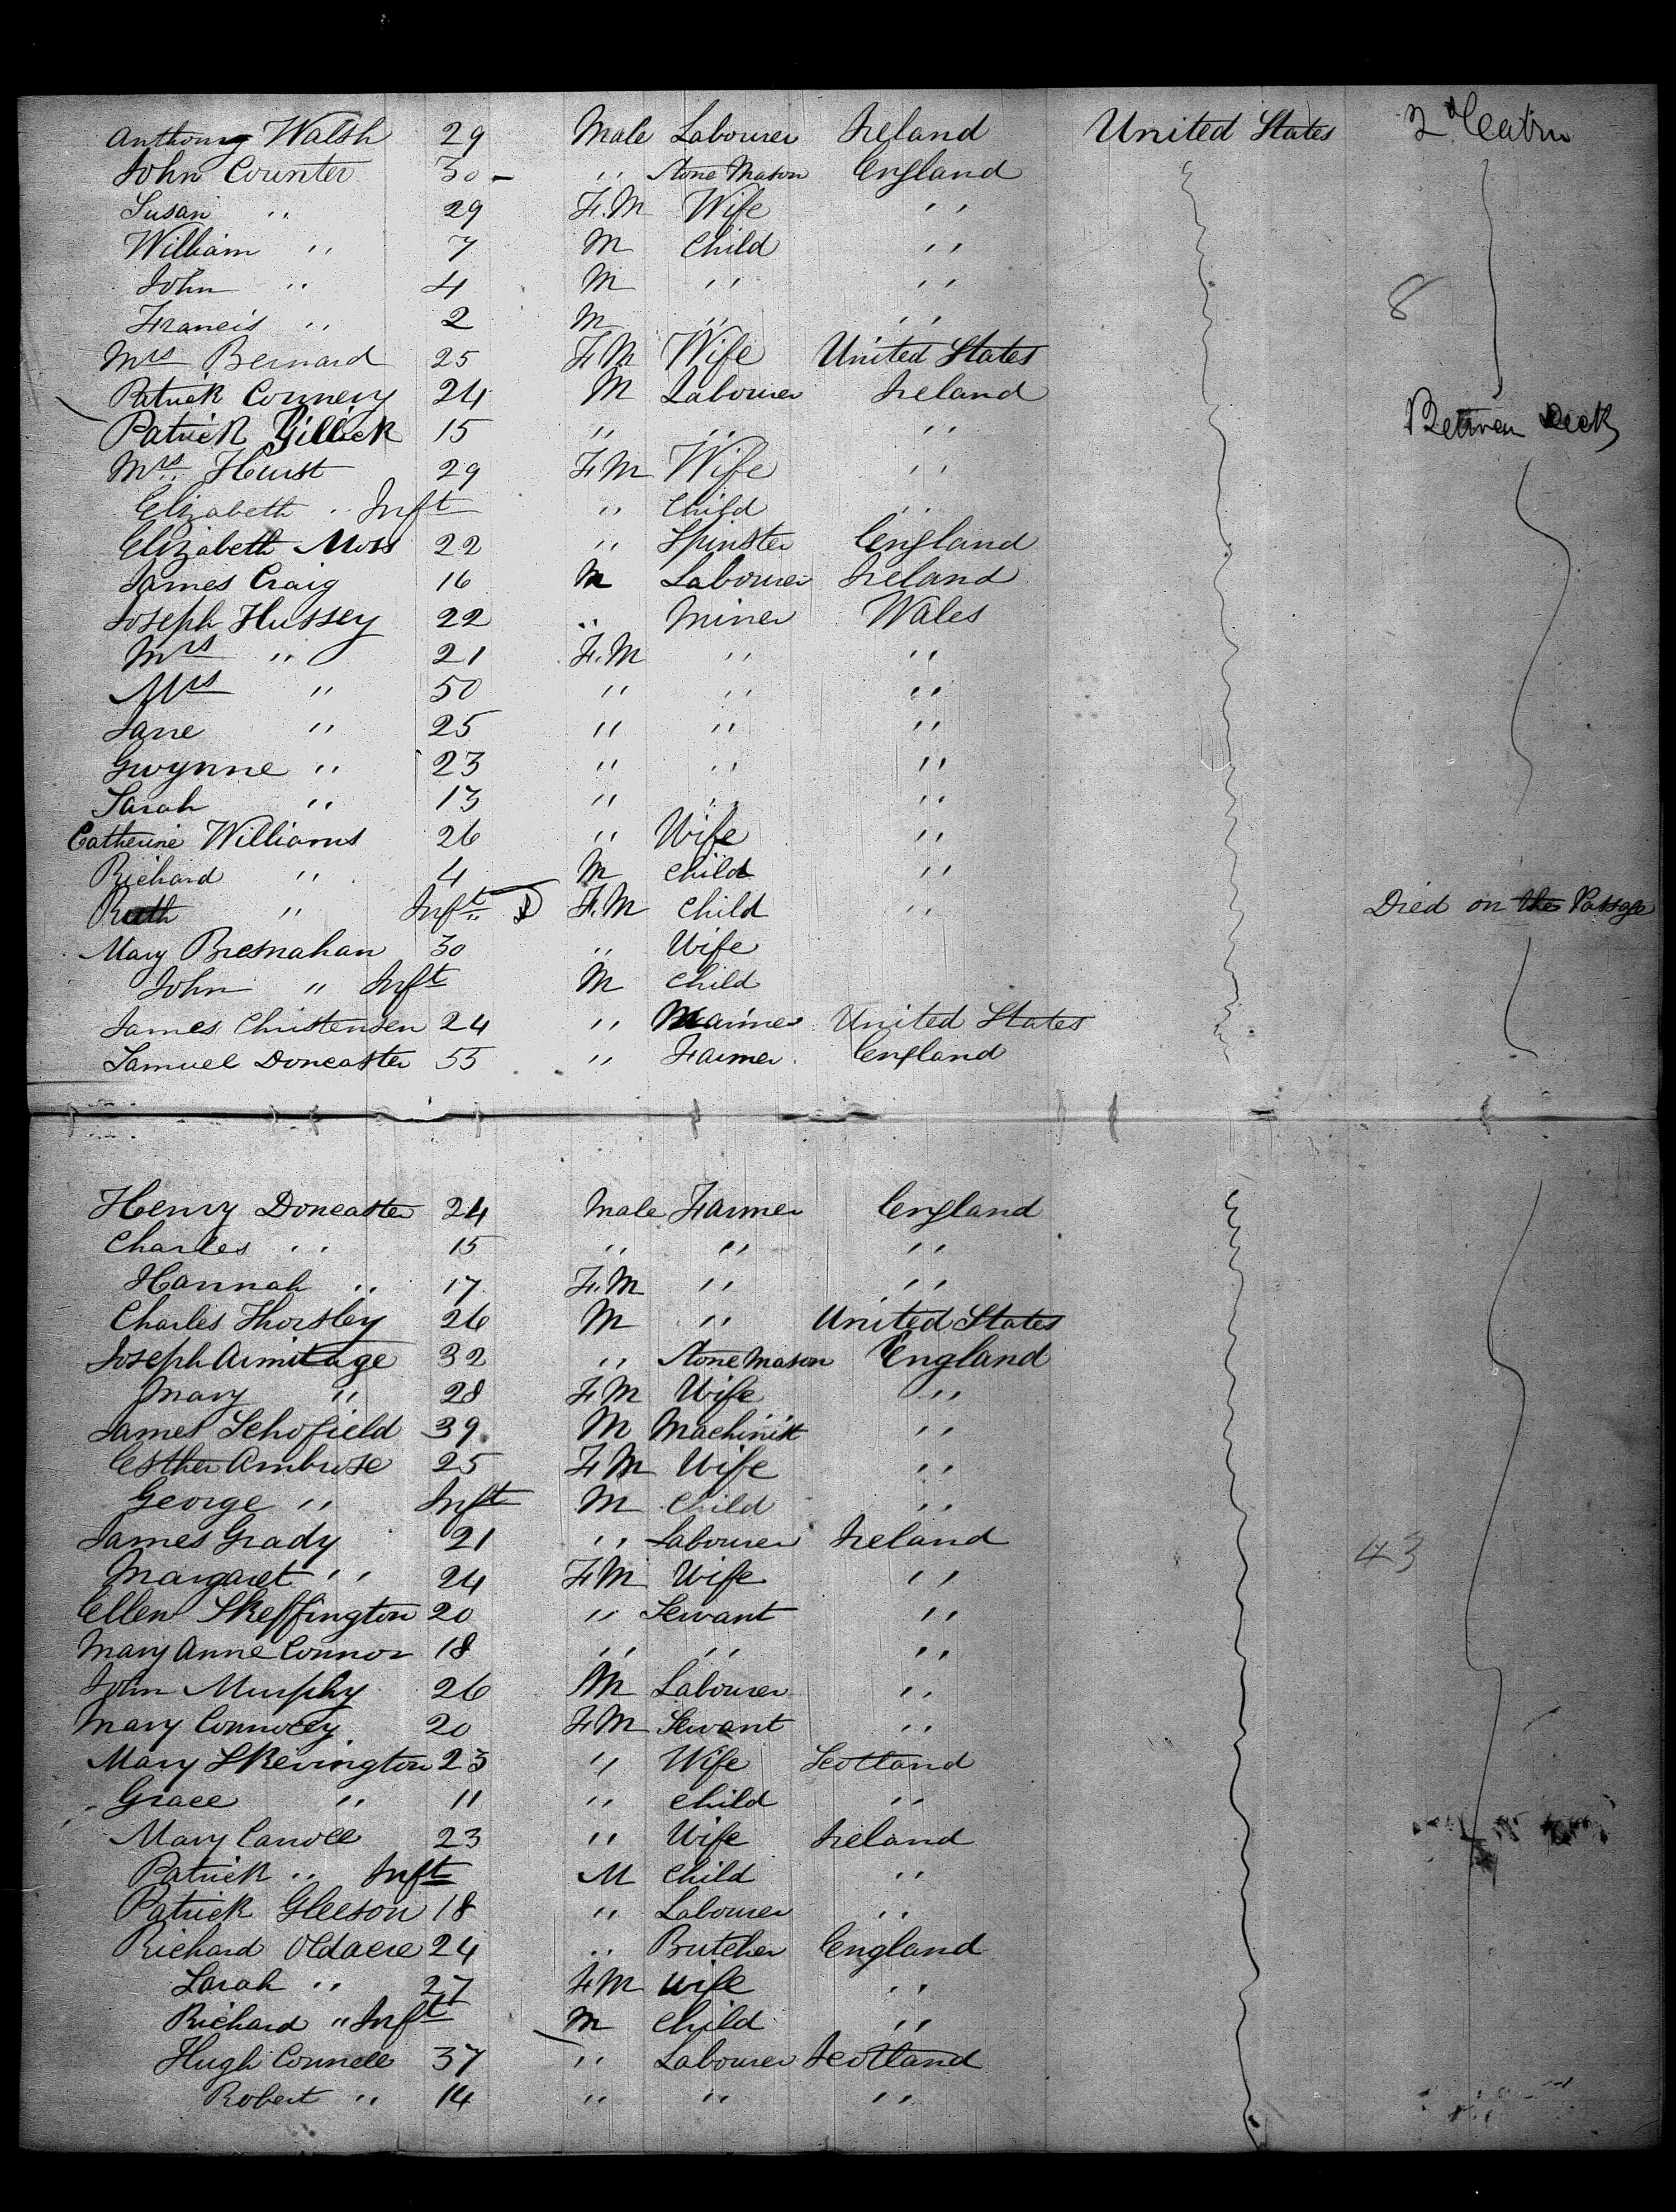 Anthony Walsh 29 Male Labourer Ireland United States 2d Cabin
John Counter 30 - " Stone Mason England
Susan " 29 F.M Wife "
William " 7 M Child "
John " 4 M " "
Francis " 2 M " " 8
Mrs Bernard 25 F M Wife United States
Patrick Connery 24 M Labourer Ireland
Patrick Gillick 15 " " " Between Deck
Mrs Hurst 29 F M Wife "
Elizabeth " Inft " Child "
Elizabeth Moss 22 " Spinster England
James Craig 16 M Labourer Ireland
Joseph Hussey 22 " Miner Wales
Mrs " 21 F.M " "
Mrs " 50 " " "
Jane " 25 " " "
Gwynne " 23 " " "
Sarah " 13 " " "
Catherine Williams 26 " Wife "
Richard " 4 M Child "
Ruth " Inft D F.M Child " Died on the Passage
Mary Bresnahan 30 " Wife
John " Inft M Child
James Christensen 24 " Mariner United States
Samuel Doncaster 55 " Farmer England
Henry Doncaster 24 Male Farmer England
Charles " 15 " " "
Hannah " 17 F.M " "
Charles Thorsley 26 M " United States
Joseph Armitage 32 " Stone Mason England
Mary " 28 F M Wife "
James Schofield 39 M Machinist "
Esther Ambrose 25 F M Wife "
George " Inft M Child "
James Grady 21 " Labourer Ireland 43
Margaret " 24 F M Wife "
Ellen Skeffington 20 " Servant "
Mary Anne Connor 18 " " "
John Murphy 26 M Labourer "
Mary 20 F M Servant "
Mary Skevington 23 " Wife Scotland
Grace " 11 " Child "
Mary Carroll 23 " Wife Ireland
Patrick " Inft M Child "
Patrick Gleeson 18 " Labourer "
Richard Oldacre 24 " Butcher England
Sarah " 27 F M Wife "
Richard " Inft M Child "
Hugh Connell 37 " Labourer Scotland
Robert " 14 " " "